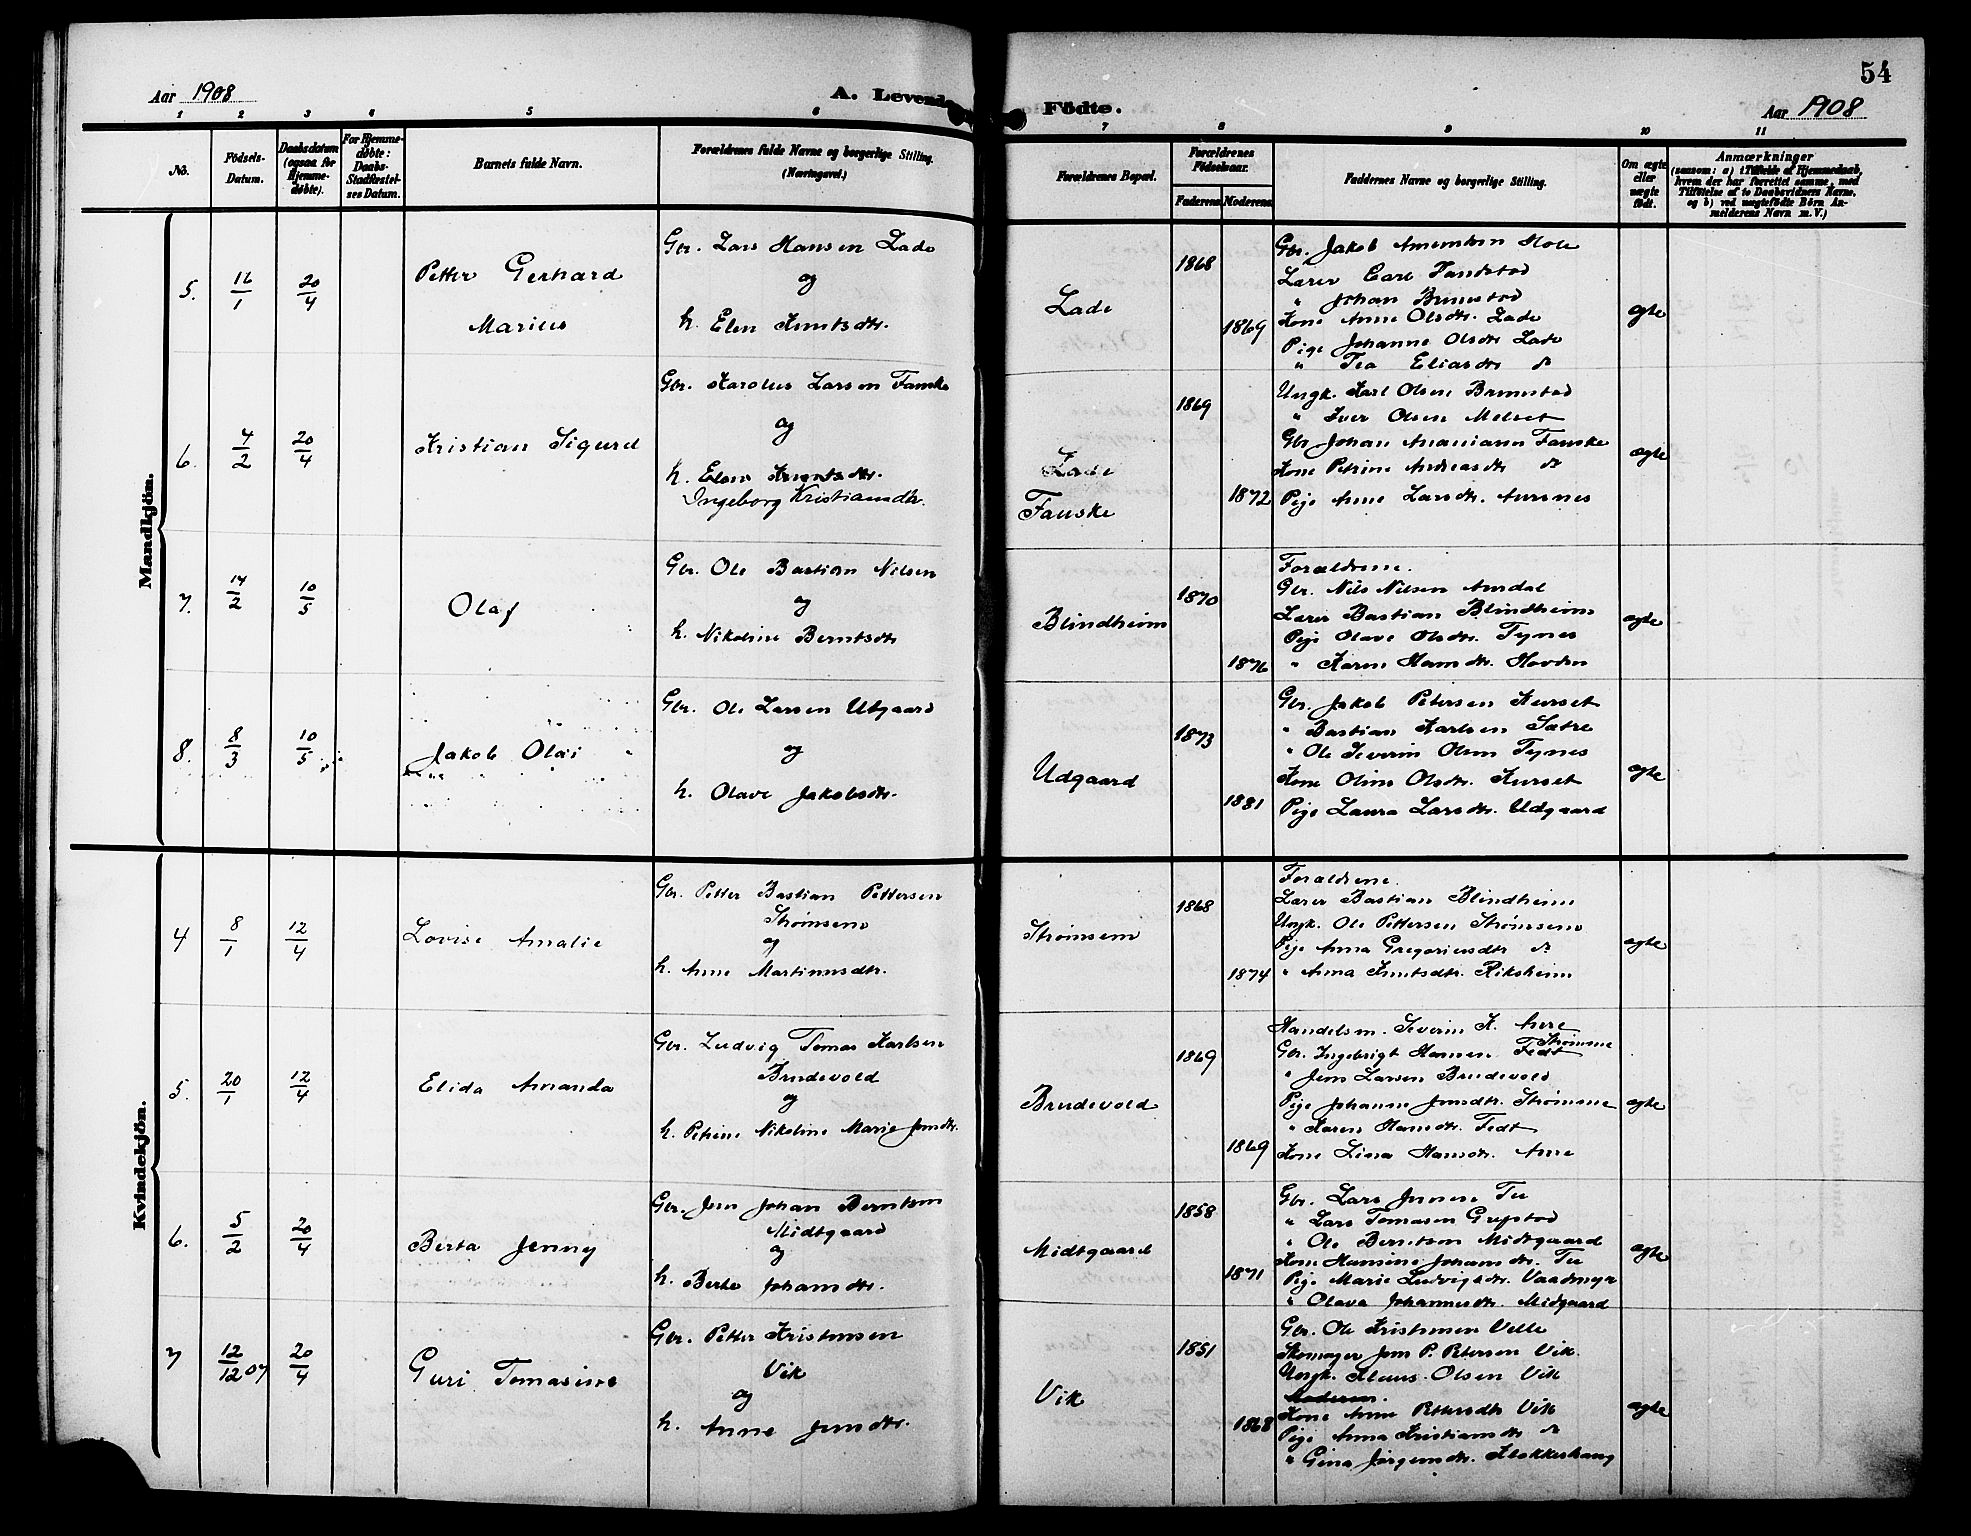 54
Aar 1908
A. Levende Födte.
Aar 1908
1 2 3 4 5 6 7 8 9 10 11
No.
Födsels-Datum.
Daabsdatum (ogsaa for Hjemme-döbte).
For Hjemme-döbte: Daabs-Stadfæstel-ses Datum.
Barnets fulde Navn.
Forældrenes fulde Navne og borgerlige Stilling. (Næringsvei.)
Forældrenes Bopæl.
Forældrenes Födselsaar.
Faderens Moderens
Faddernes Navne og borgerlige Stilling.
Om ægte eller uægte födt.
Anmærkninger
(saasom: a) i Tilfælde af Hjemmedaab,
hvem der har forrettet samme, med
Tilföielse af to Daabsvidners Navne,
og b) ved uægtefödte Börn An-
melderens Navn m. V.)
Mandkjön.
5. 16/1 20/4
Petter Gerhard
Marius
Gbr. Lars Hansen Lade
og
h. Elen Knutsdtr.
Lade
1868
1869
Gbr. Jakob Amundsen Hole
Lærer Carl Tandstad
" Johan Brunstad
Kone Anne Olsdtr. Lade
Pige Johanne Olsdtr Lade
" Tea Eliasdtr do
ægte
6. 4/2 20/4
Kristian Sigurd
Gbr. Karolus Larsen Fauske
og
h. Elen Knutsdtr.
Ingeborg Kristiansdtr.
Lade
Fauske
1869
1872
Ungk. Karl Olsen Brunstad
" Iver Olsen Melset
Gbr Johan Ananiasen Fauske
Kone Petrine Andreasdtr do
Pige Anne Larsdtr. Aursnes
ægte
7. 14/2 10/5
Olaf
Gbr. Ole Bastian Nilsen
og
h. Nikoline Berntsdtr
Blindheim
1870
1876
Forældrene.
Gbr. Nils Nilsen Amdal
Lærer Bastian Blindheim
Pige Olave Olsdtr. Tynes
" Karen Hansdtr. Hovden
ægte
8. 8/3 10/5
Jakob Olai
Gbr. Ole Larsen Utgaard
og
h. Olave Jakobsdtr.
Udgaard
1873
1881
Gbr. Jakob Petersen Kurset
" Bastian Karlsen Sætre
" Ole Severin Olsen Tynes
Kone Oline Olsdtr. Kurset
Pige Laura Larsdtr. Udgaard
ægte
Kvindekjön.
4 8/1 12/4
Lovise Amalie
Gbr. Petter Bastian Pettersen
Strømsem
og
h. Anne Martinusdtr.
Strømsem
1868
1874
Forældrene.
Lærer Bastian Blindheim
Ungk. Ole Pettersen Strømsem
Pige Anna Gregoriusdtr do
" Anna Knutsdtr. Riksheim
ægte
5. 20/1 12/4
Elida Amanda
Gbr. Ludvig Tomas Karlsen
Brudevold
og
h. Petrine Nikoline Marie Jonsdtr.
Brudevold
1869
1869
Handelsm. Severin K. Aure
Strømme
Gbr. Ingebrigt Hansen Fedt
" Jens Larsen Brudevold
Pige Johanne Jonsdtr. Strømme
" Karen Hansdtr. Fedt
Kone Lina Hansdtr. Aure
ægte
6. 5/2 20/4
Berta Jenny
Gbr. Jon Johan Berntsen
Midtgaard
og
h. Berte Johansdtr.
Midtgaard
1858
1871
Gbr. Lars Jensen Tu
" Lars Tomasen Grepstad
" Ole Berntson Midtgaard
Kone Hansine Johansdtr. Tu
Pige Marie Ludvigsdtr. Vaadmyr
" Olava Johannesdtr. Midgaard
ægte
7 12/12 07 20/4
Guri Tomasine
Gbr. Petter Kristensen
Vik
og
h. Anne Jonsdtr.
Vik
1851
1868
Gbr. Ole Kristensen Velle
Skomager Jon P. Petersen Vik.
Ungk. Klaus Olsen Vik
Moderen.
Kone Anne Pettersdtr Vik
Pige Anna Kristiansdtr do
" Gina Jørgensdtr. Klokkerhaug
ægte